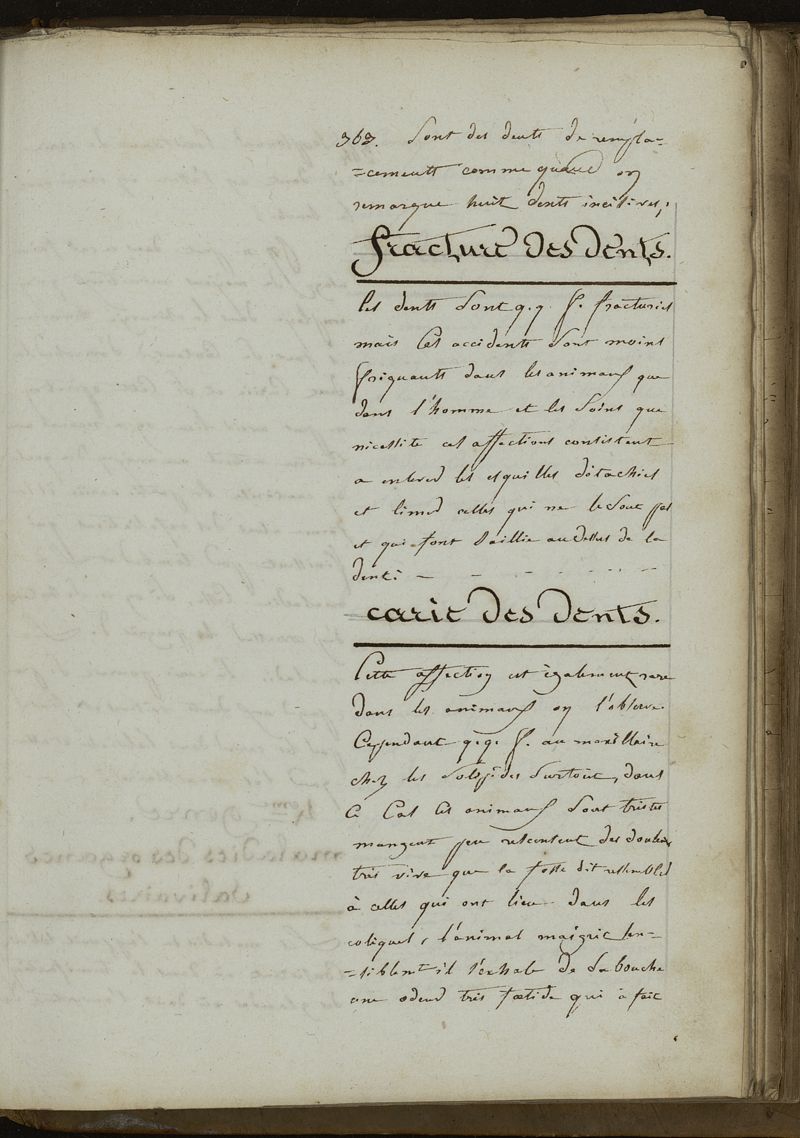 363. Sont des dents de rempla=
=cements comme quand on
remarque huit dents incisives;
fracture des dents.
les dents sont q.q. f. fracturies
mais ces accidents sont moins
friquants dans les animaux que
dans l'homme et les soins que
nicessite ces affections consistent
a enlever les esquilles ditachies
et limer celles qui ne le sont pas
et qui font saillie au dessus de la
dent:
carie des dents.
Cette affection est ègalement rare
dans les animaux on l'observe
Cependant q.q. f. au maxillaire
chez les solipides surtout, dans
ce Cas les animaux sont tristes
mangent peu ressentent des douleurs
très vive que la fosse dit ressembler
à celles qui ont lieu dans les
coliques, l'animal maigrie sen=
=siblemt il s'exhale de la bouche
une odeur très foetide qui à fait
4eme genre.
maladies des organes
salivaires.